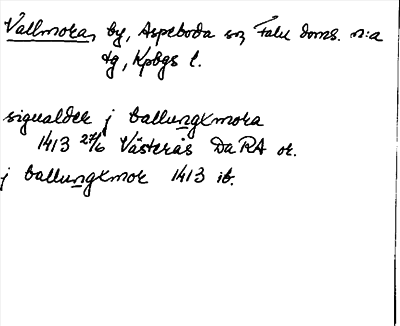 Vallmora, by, Aspeboda sn, Falu doms. n:a
tg, Kpbgs l.
sigualder j ballungxmora
1413 27/6 Västerås Da RA or.
j ballungxmor 1413 ib.